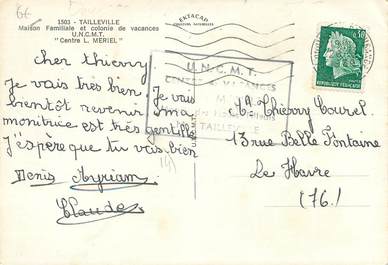 6€
1503 - TAILLEVILLE
Maison Familiale et colonie de vacances
U.N.C.M.T.
"Centre L. MERIEL"
EKTACAP
Cher thierry
Je vais très bien. Je vais
bientôt revenir ma
monitrice est très gentille
J'espère que tu vas bien
Denis Myriam
Claude
U.N.C.M.T.
CENTRE DE VACANCES
TAILLEVILLE
0,30
REPUBLIQUE FRANÇAISE
Thierry Tourel
13 rue Belle Fontaine
Le Havre
(76)
(14)